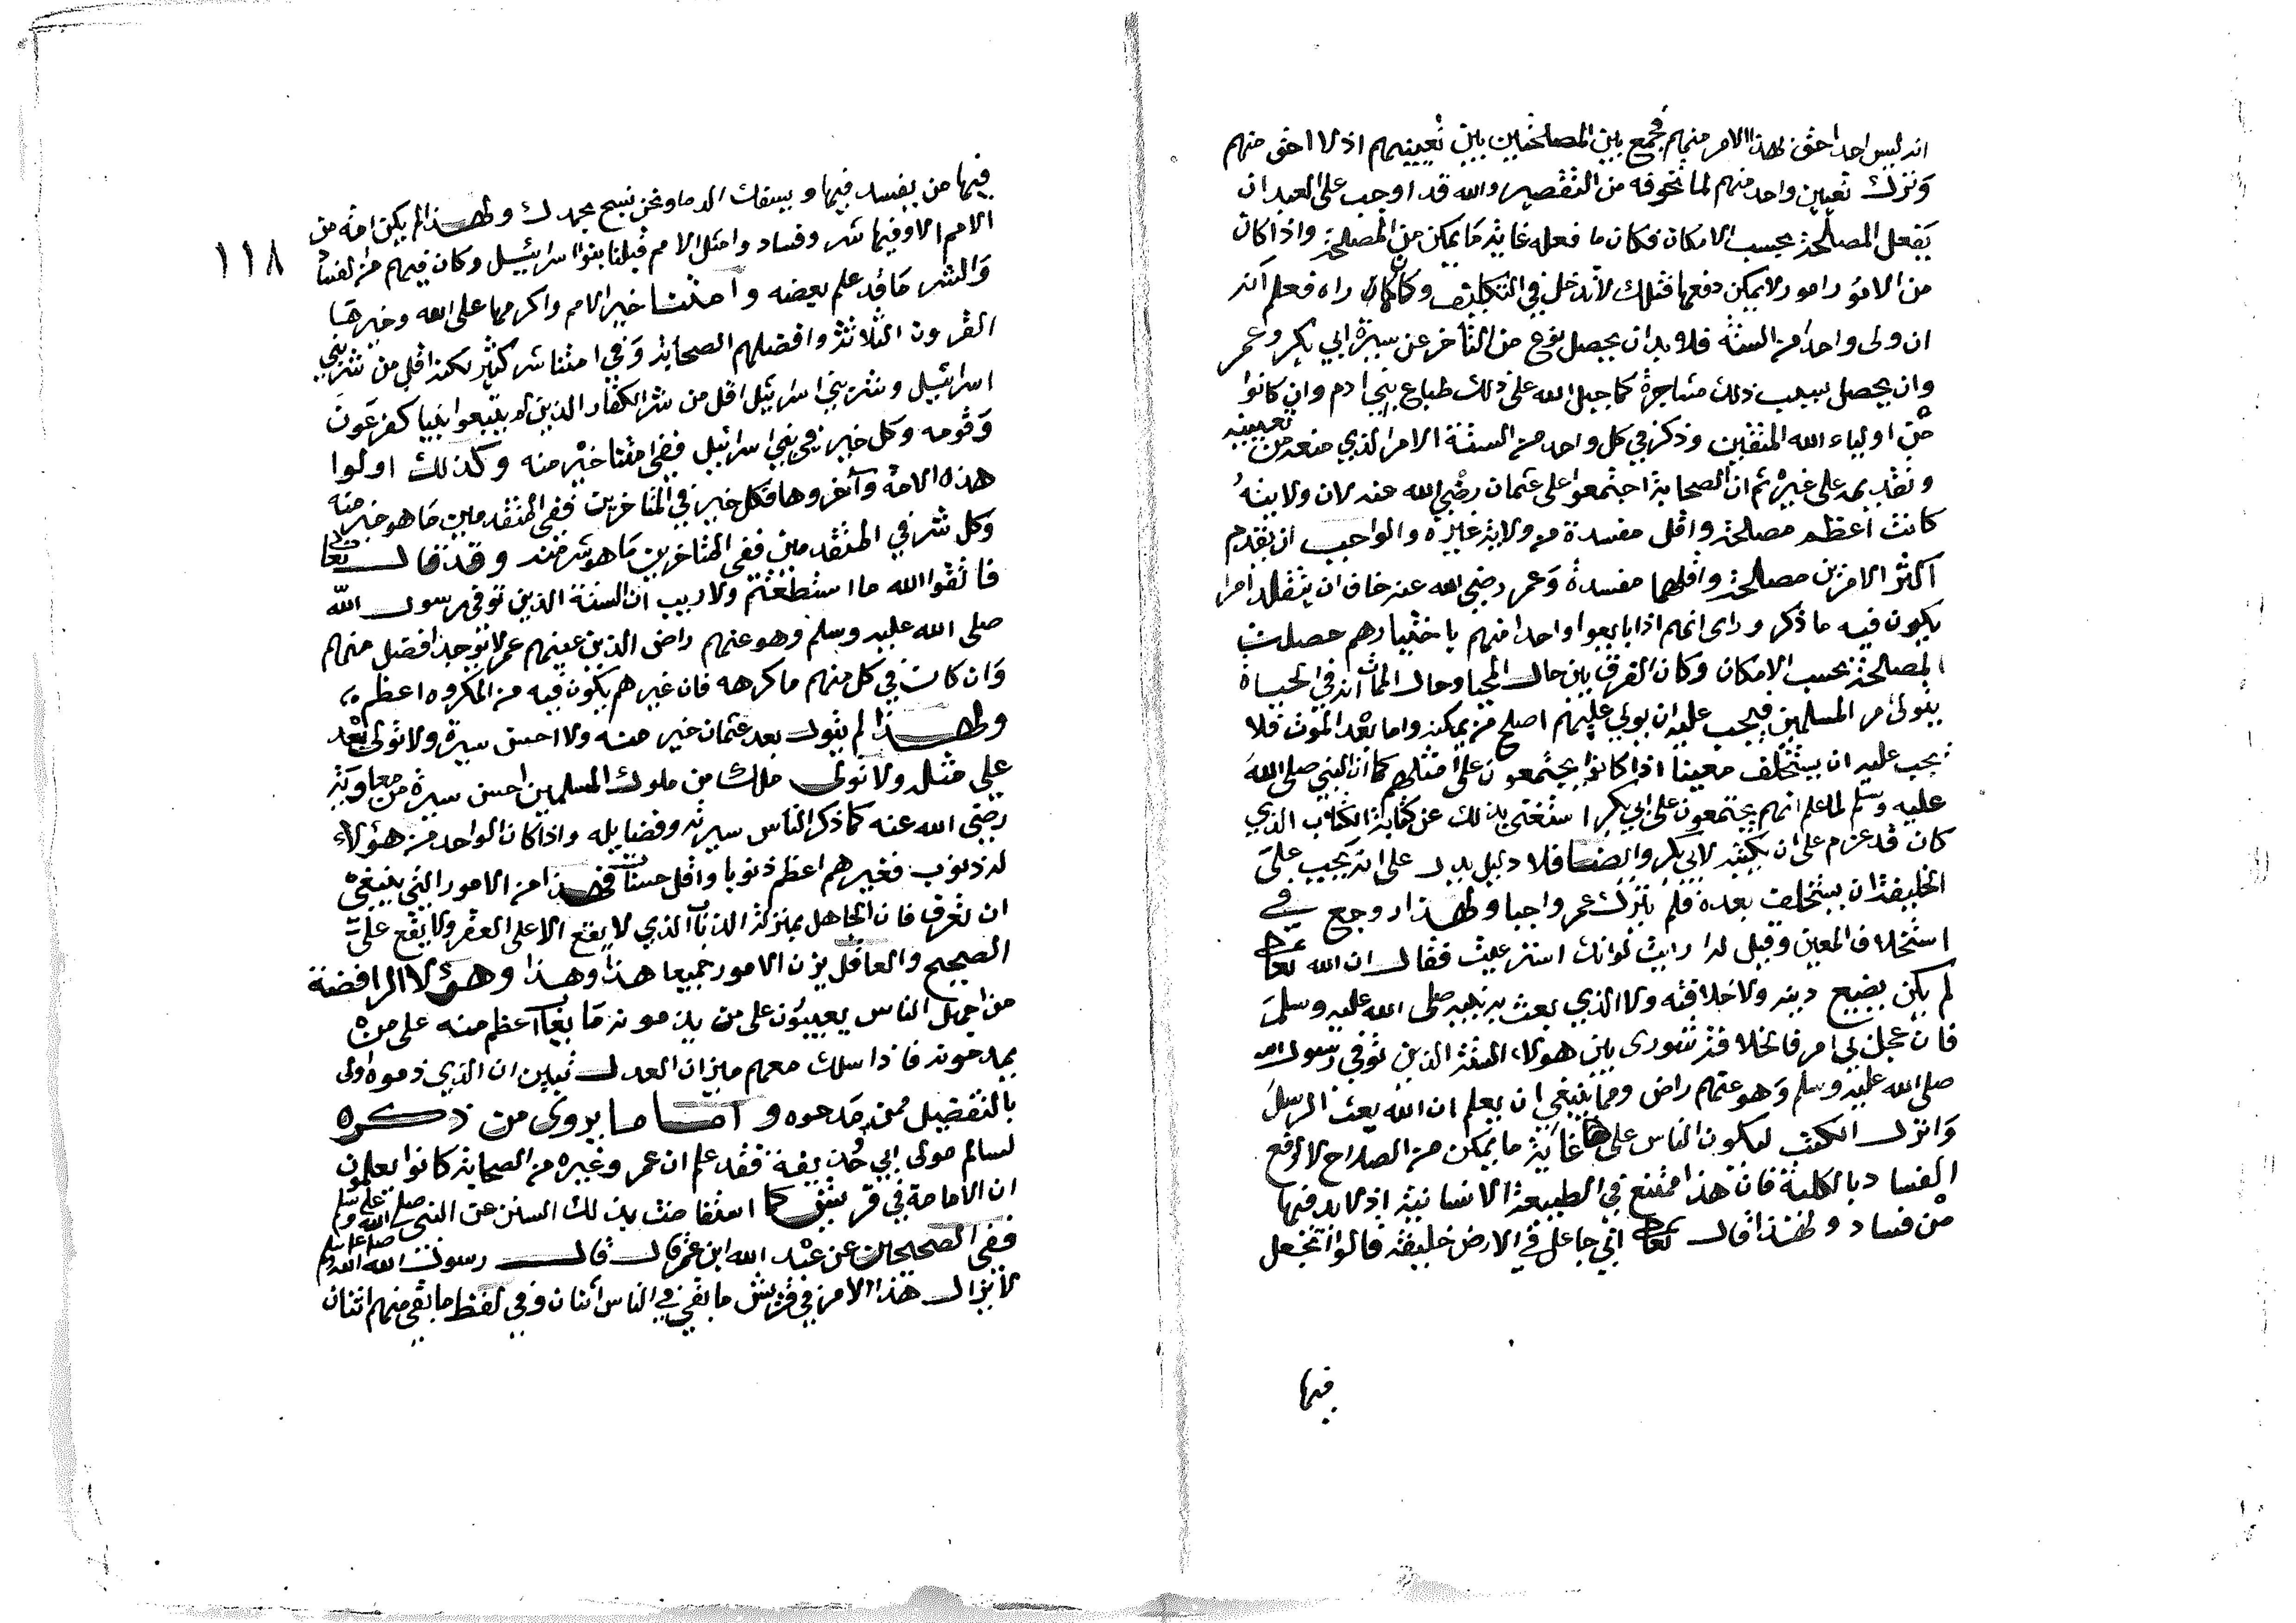 انه ليس احد احق بهذا الامر منهم فجمع بين المصلحتين بين تعيينهم اذ لا احق منهم
وترك تعيين واحد منهم لما تخوفه من التقصير والله قد اوجب على العبد ان
يفعل المصلحة بحسب الامكان فكان ما فعله غاية ما يمكن من المصلحة واذا كان
من الامور امور لا يمكن دفعها فتلك لا تدخل في التكليف وكان كما راه فعلم انه
ان ولى واحدا من الستة فلا بد ان يحصل نوع من التاخر عن سيرة ابي بكر وعمر
وان يحصل بسبب ذلك مشاجرة كما جبل الله على ذلك طباع بني ادم وان كانوا
من اولياء الله المتقين وذكر في كل واحد من الستة الامر الذي منعه من تعيينه
وتقديمه على غيره ثم ان الصحابة اجتمعوا على عثمان رضي الله عنه لان ولايته
كانت اعظم مصلحة واقل مفسدة من ولاية غيره والواجب ان يقدم
اكثر الامرين مصلحة واقلهما مفسدة وعمر رضي الله عنه خاف ان يتقلد امرا
يكون فيه ما ذكر وراى انهم اذا بايعوا واحدا منهم باختيارهم حصلت
المصلحة بحسب الامكان وكان الفرق بين حال المحيا وحال الممات انه في الحياة
يتولى امر المسلمين فيجب عليه ان يولي عليهم اصلح من يمكنه واما بعد الموت فلا
يجب عليه ان يستخلف معينا اذا كانوا يجتمعون على امثلهم كما ان النبي صلى الله
عليه وسلم لما علم انهم يجتمعون على ابي بكر استغنى بذلك عن كتابة الكتاب الذي
كان قد عزم على ان يكتبه لابي بكر وايضا فلا دليل يدل على انه يجب على
الخليفة ان يستخلف بعده فلم يترك عمر واجبا ولهذا روجع في
استخلاف المعين وقيل له ارايت لو انك استرعيت فقال ان الله تعالى
لم يكن يضيع دينه ولا خلافته ولا الذي بعث به نبيه صلى الله عليه وسلم
فان عجل بي امر فالخلافة شورى بين هولاء الستة الذين توفي رسول الله
صلى الله عليه وسلم وهو عنهم راض ومما ينبغي ان يعلم ان الله بعث الرسل
وانزل الكتب ليكون الناس على غاية ما يمكن من الصلاح لا لرفع
الفساد بالكلية فان هذا ممتنع في الطبيعة الانسانية اذ لا بد فيها
من فساد ولهذا قال تعالى اني جاعل في الارض خليفة قالوا اتجعل
فيها
١١٨
فيها من يفسد فيها ويسفك الدما ونحن نسبح بحمدك ولهذا لم يكن امة من
الامم الا وفيها شر وفساد وامثل الامم قبلنا بنوا اسرائيل وكان فيهم من الفساد
والشر ما قد علم بعضه وامتنا خير الامم واكرمها على الله وخيرها
القرون الثلاثة وافضلهم الصحابة وفي امتنا شر كثير لكنه اقل من شر بني
اسرائيل وشر بني اسرائيل اقل من شر الكفار الذين لم يتبعوا نبيا كفرعون
وقومه وكل خير في بني اسرائيل ففي امتنا خير منه وكذلك اولوا
هذه الامة وآخروها فكل خير في المتاخرين ففي المتقدمين ما هو خير منه
وكل شر في المتقدمين ففي المتاخرين ما هو شر منه وقد قال تعالى
فاتقوا الله ما استطعتم ولا ريب ان الستة الذين توفي رسول الله
صلى الله عليه وسلم وهو عنهم راض الذين عينهم عمر لا يوجد افضل منهم
وان كان في كل منهم ما كرهه فان غيرهم يكون فيه من المكروه اعظم
ولهذا لم يتول بعد عثمان خير منه ولا احسن سيرة ولا تولى بعد
علي مثله ولا تولى ملك من ملوك المسلمين احسن سيرة من معاوية
رضي الله عنه كما ذكر الناس سيرته وفضايله واذا كان الواحد من هؤلاء
له ذنوب فغيرهم اعظم ذنوبا واقل حسنات فهذا من الامور التي ينبغي
ان تعرف فان الجاهل بمنزلة الذباب الذي لا يقع الا على العقر ولا يقع على
الصحيح والعاقل يزن الامور جميعا هذا وهذا وهؤلا الرافضة
من اجهل الناس يعيبون على من يذمونه ما يعاب اعظم منه على من
يمدحونه فاذا سلك معهم ميزان العدل تبين ان الذي ذموه اولى
بالتفضيل ممن مدحوه واما ما يروى من ذكره
لسالم مولى ابي حذيفة فقد علم ان عمر وغيره من الصحابة كانوا يعلمون
ان الامامة في قريش كما استفاضت بذلك السنن عن النبي صلى الله عليه وسلم
ففي الصحيحين عن عبد الله ابن عمر قال قال رسول الله صلى الله عليه وسلم
لا يزال هذا الامر في قريش ما بقي في الناس اثنان وفي لفظ ما بقي منهم اثنان